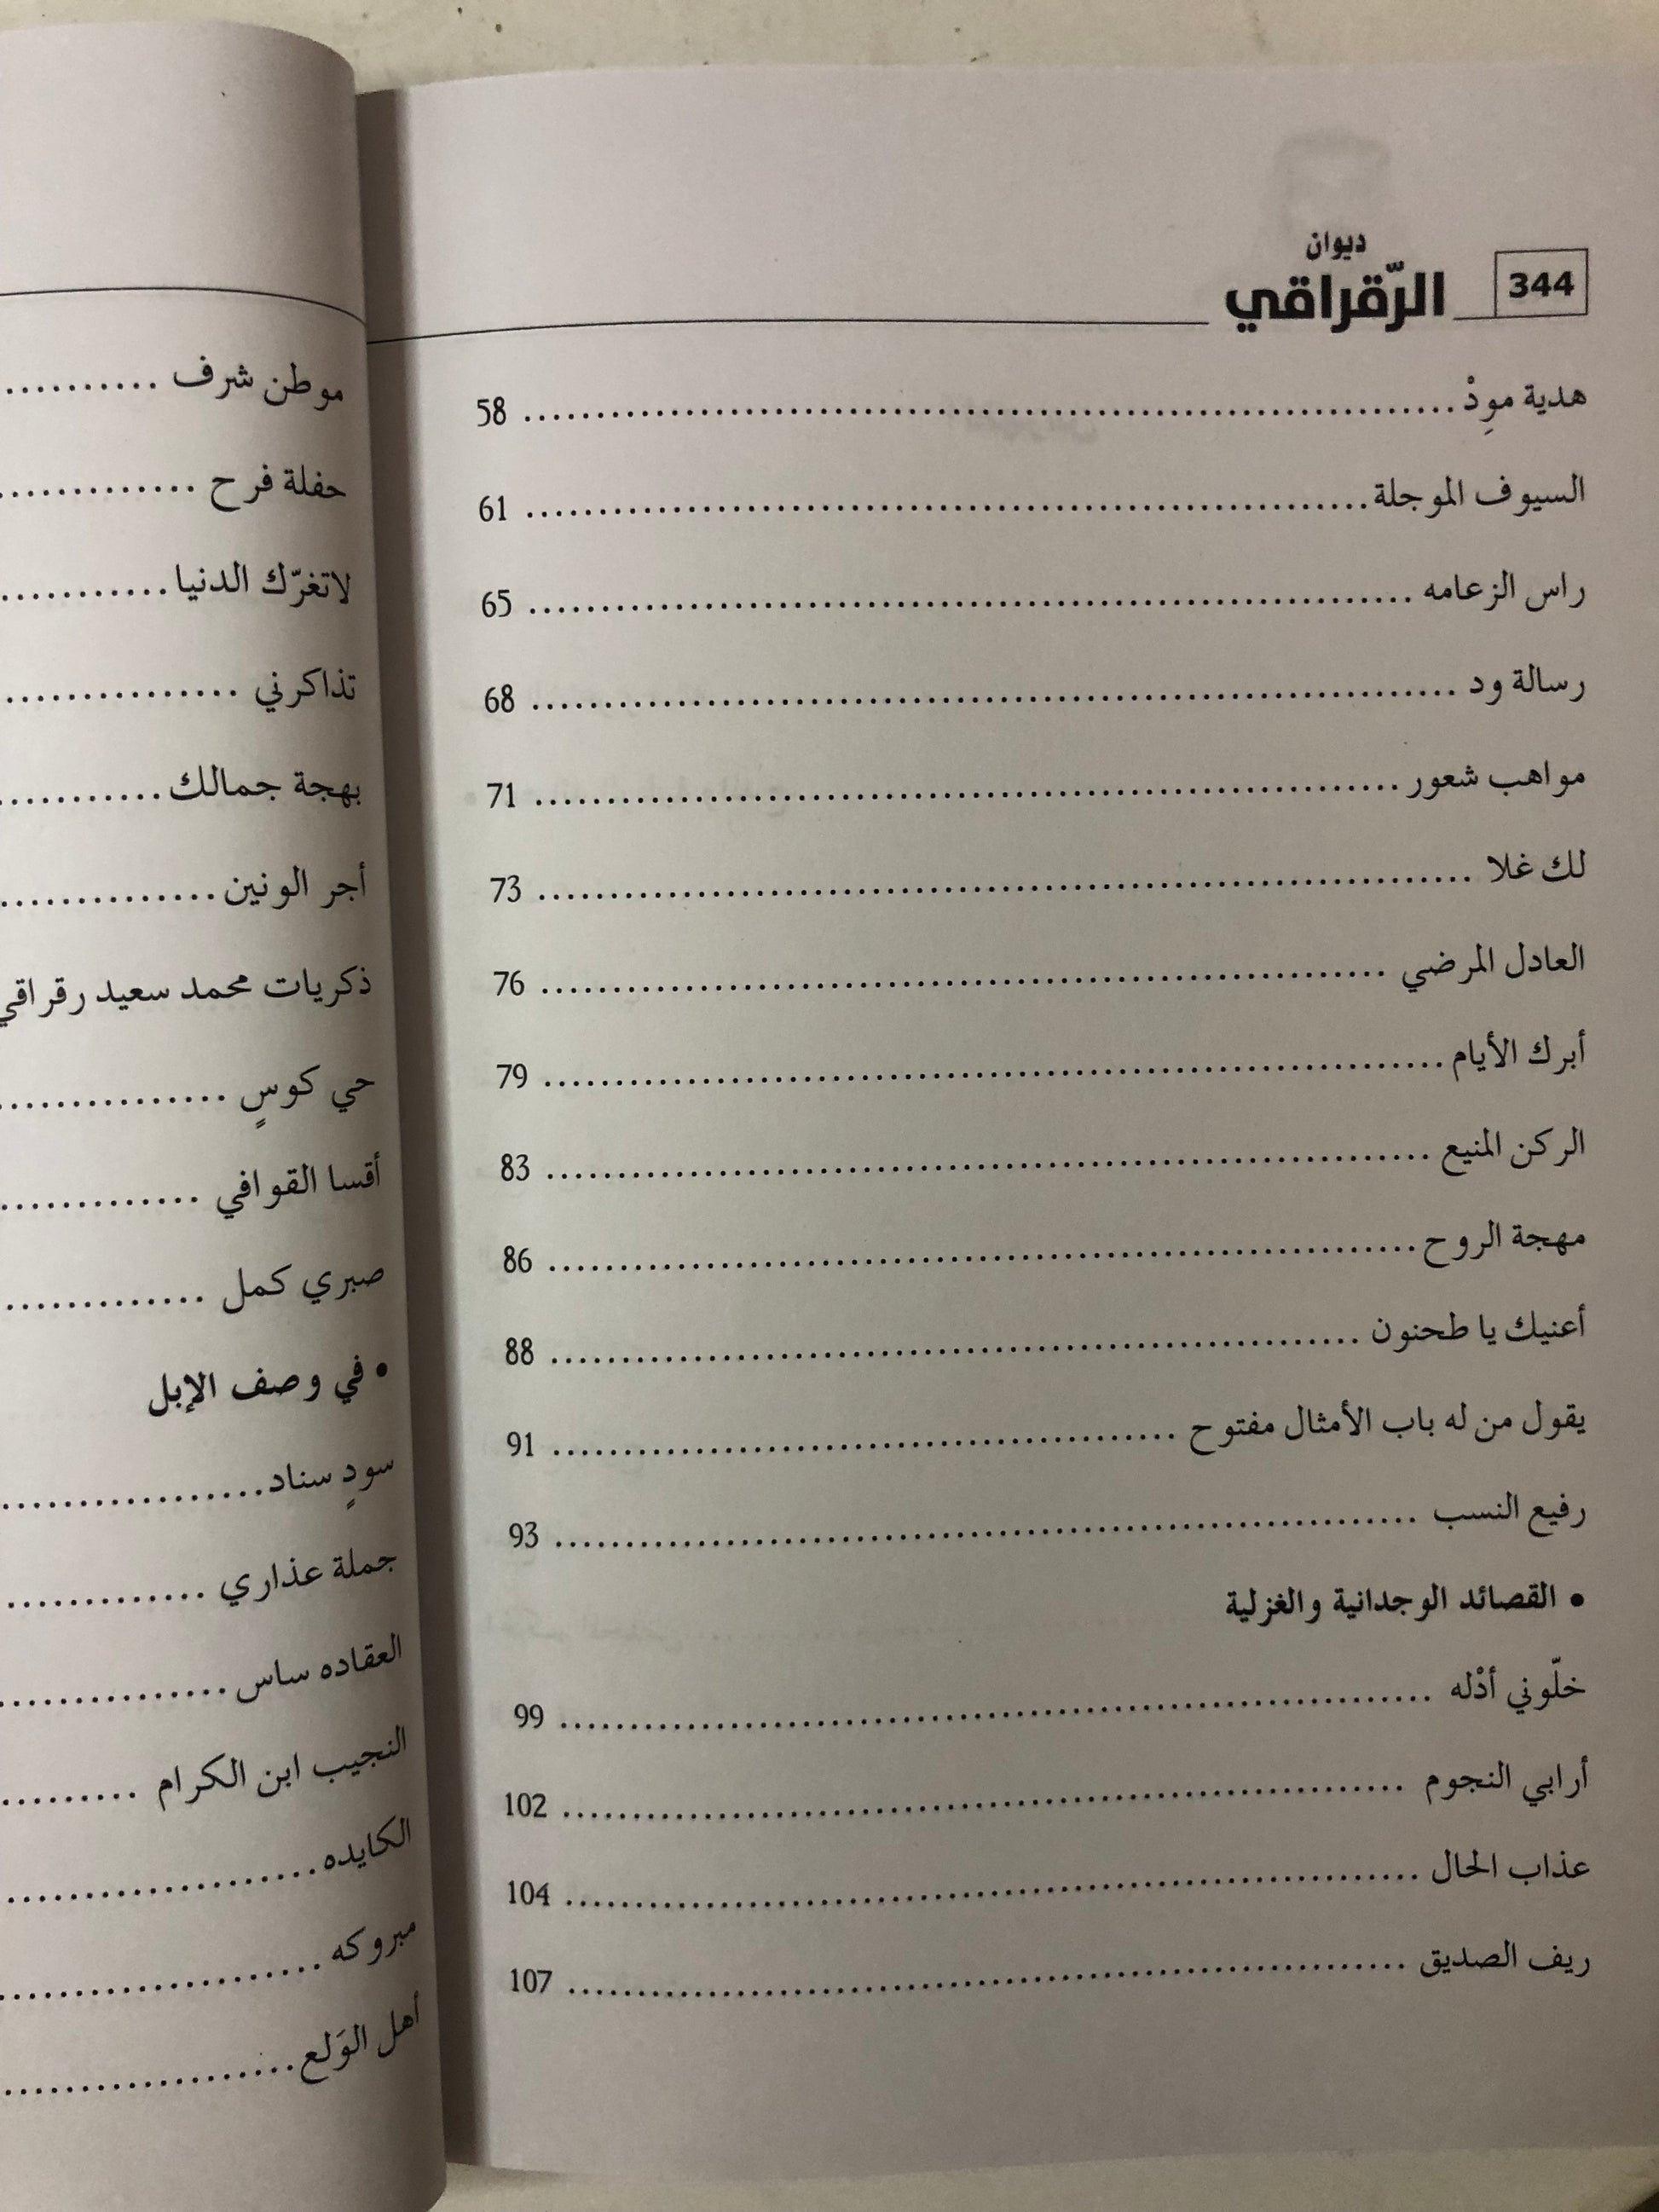 344
ديوان
الرّقراقي
هدية مودْ .......... 58
السيوف الموجلة .......... 61
راس الزعامه .......... 65
رسالة ود .......... 68
مواهب شعور .......... 71
لك غلا .......... 73
العادل المرضي .......... 76
أبرك الأيام .......... 79
الركن المنيع .......... 83
مهجة الروح .......... 86
أعنيك يا طحنون .......... 88
يقول من له باب الأمثال مفتوح .......... 91
رفيع النسب .......... 93
• القصائد الوجدانية والغزلية
خلّوني أدْله .......... 99
أرابي النجوم .......... 102
عذاب الحال .......... 104
ريف الصديق .......... 107
موطن شرف ..........
حفلة فرح ..........
لاتغرّك الدنيا ..........
تذاكرني ..........
بهجة جمالك ..........
أجر الونين ..........
ذكريات محمد سعيد رقراقي
حي كوسٍ ..........
أقسا القوافي ..........
صبري كمل ..........
• في وصف الإبل
سودٍ سناد ..........
جملة عذاري ..........
العقاده ساس ..........
النجيب ابن الكرام ..........
الكايده ..........
مبروكه ..........
أهل الوَلع ..........